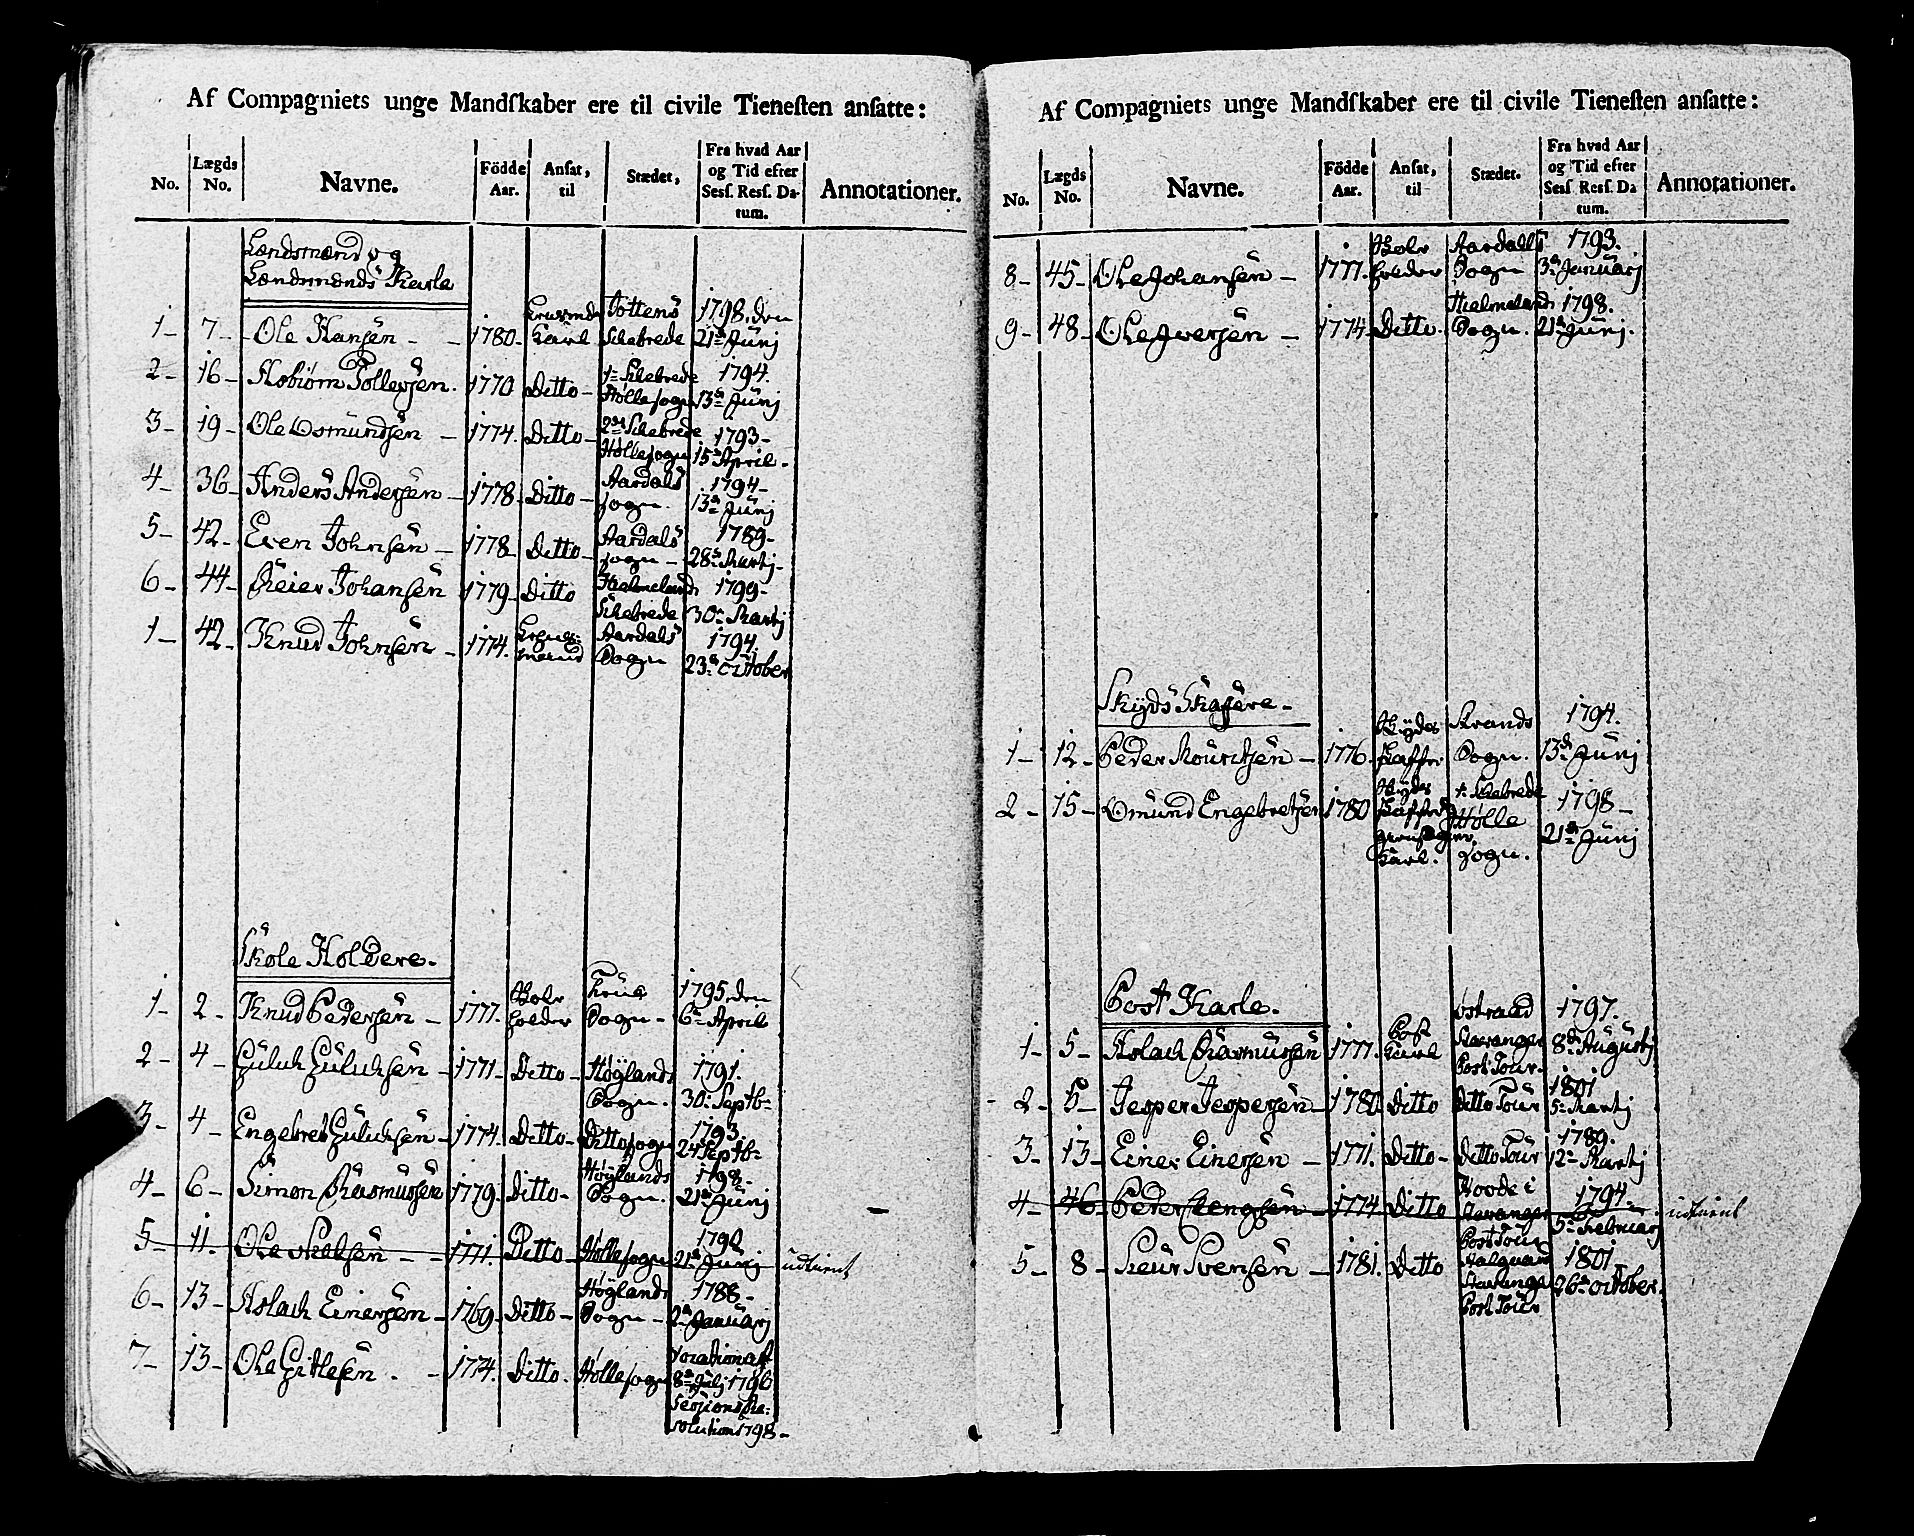 Af Compagniets unge Mandſkaber ere til civile Tieneſten anſatte:
No. Lægds No. Navne. Födde Aar. Anſat, til Stædet, Fra hvad Aar og Tid efter Sesſ. Reſſ. Datum. Annotationer.
Lændsmænd og
Lændsmænds Karle
1- 7- Ole Hansen - 1780- Karl Tottens Skebrede 1798. den 21de Junj
2- 16- Asbiörn Tollevsen. 1770 Ditto- 1te Skebrede Hölle sogn 1794. 13de Junj
3- 19- Ole Osmundsen - 1774. Ditto- 2det Skebrede Hölle sogn 1793- 15de April-
4- 36- Anders Andersen - 1778- Ditto- Aardals sogn. 1794- 13de Junj
5- 42- Even Johnsen - 1778- Ditto- Aardals sogn- 1789- 28de Martj-
6- 44- Reier Johansen 1779- Ditto Hielmeland Skebrede 1799- 30te Martj
1- 42- Knud Johnsen - 1774. Aardals Sogn 1794. 23de October
Skole Holdere.
1- 2- Knud Pedersen - 1777. Skole holder Sogn- 1795. den 6te April
2- 4- Guluk Guluksen - 1771- Ditto- Höglands Sogn. 1791. 30te Septb-
3- 4- Engebret Guluksen - 1774. Ditto- Ditto sogn 1793. 24 Septb-
4- 6- Simon Rasmussen 1779. Ditto- Höglands Sogn. 1798- 21de Junj
5- 11. Ole Nielsen - - 1771. Ditto- Hölle sogn 21de Junj udtient
6- 13- Aslach Einersen - 1769- Ditto- Höglands Sogn- 1788- 2de Januarj
7- 13- Ole Gitlesen. - 1774. Ditto. Hölle sogn Vocation af 8de Julj 1796 Sessions Resolution 1798-
Af Compagniets unge Mandſkaber ere til civile Tieneſten anſatte:
No. Lægds No. Navne. Födde Aar. Anſat, til Stædet. Fra hvad Aar og Tid efter Sesſ. Reſſ. Datum. Annotationer.
8- 45- Ole Johansen - 1777. Skole holder Aardals Sogn 1793. 3de Januarj
9- 48- Ole Iversen - 1774- Ditto. Hielmeland Sogn. 1798. 21de Junj.
Skyds Skafere-
1- 12- Peder Mouritsen - 1776. Skyds skaffer Strands Sogn. 1794. 13de Junj
2- 15- Omund Engebretsen 1780 Skyds skaffer Karl. 1. Skebrede Hölle sogn. 1798- 21de Junj
Post Karle.
1- 5- Aslach Rasmussen 1777. Post Karl Stavanger Post Tour- 1797. 8de Augustj
- 2- 5- Jesper Jespersen - 1780 Ditto Ditto Tour 1801 5te Martj
3- 13- Einer Einersen - 1771. Ditto- Ditto Tour 1789. 12te Martj
4- 46- Peder - 1774 Ditto Stavanger Post Tour 1794. 5te Februarj udtient
5- 8- Siur Svensen - 1781. Ditto Stavanger Post Tour 1801. 26de October.